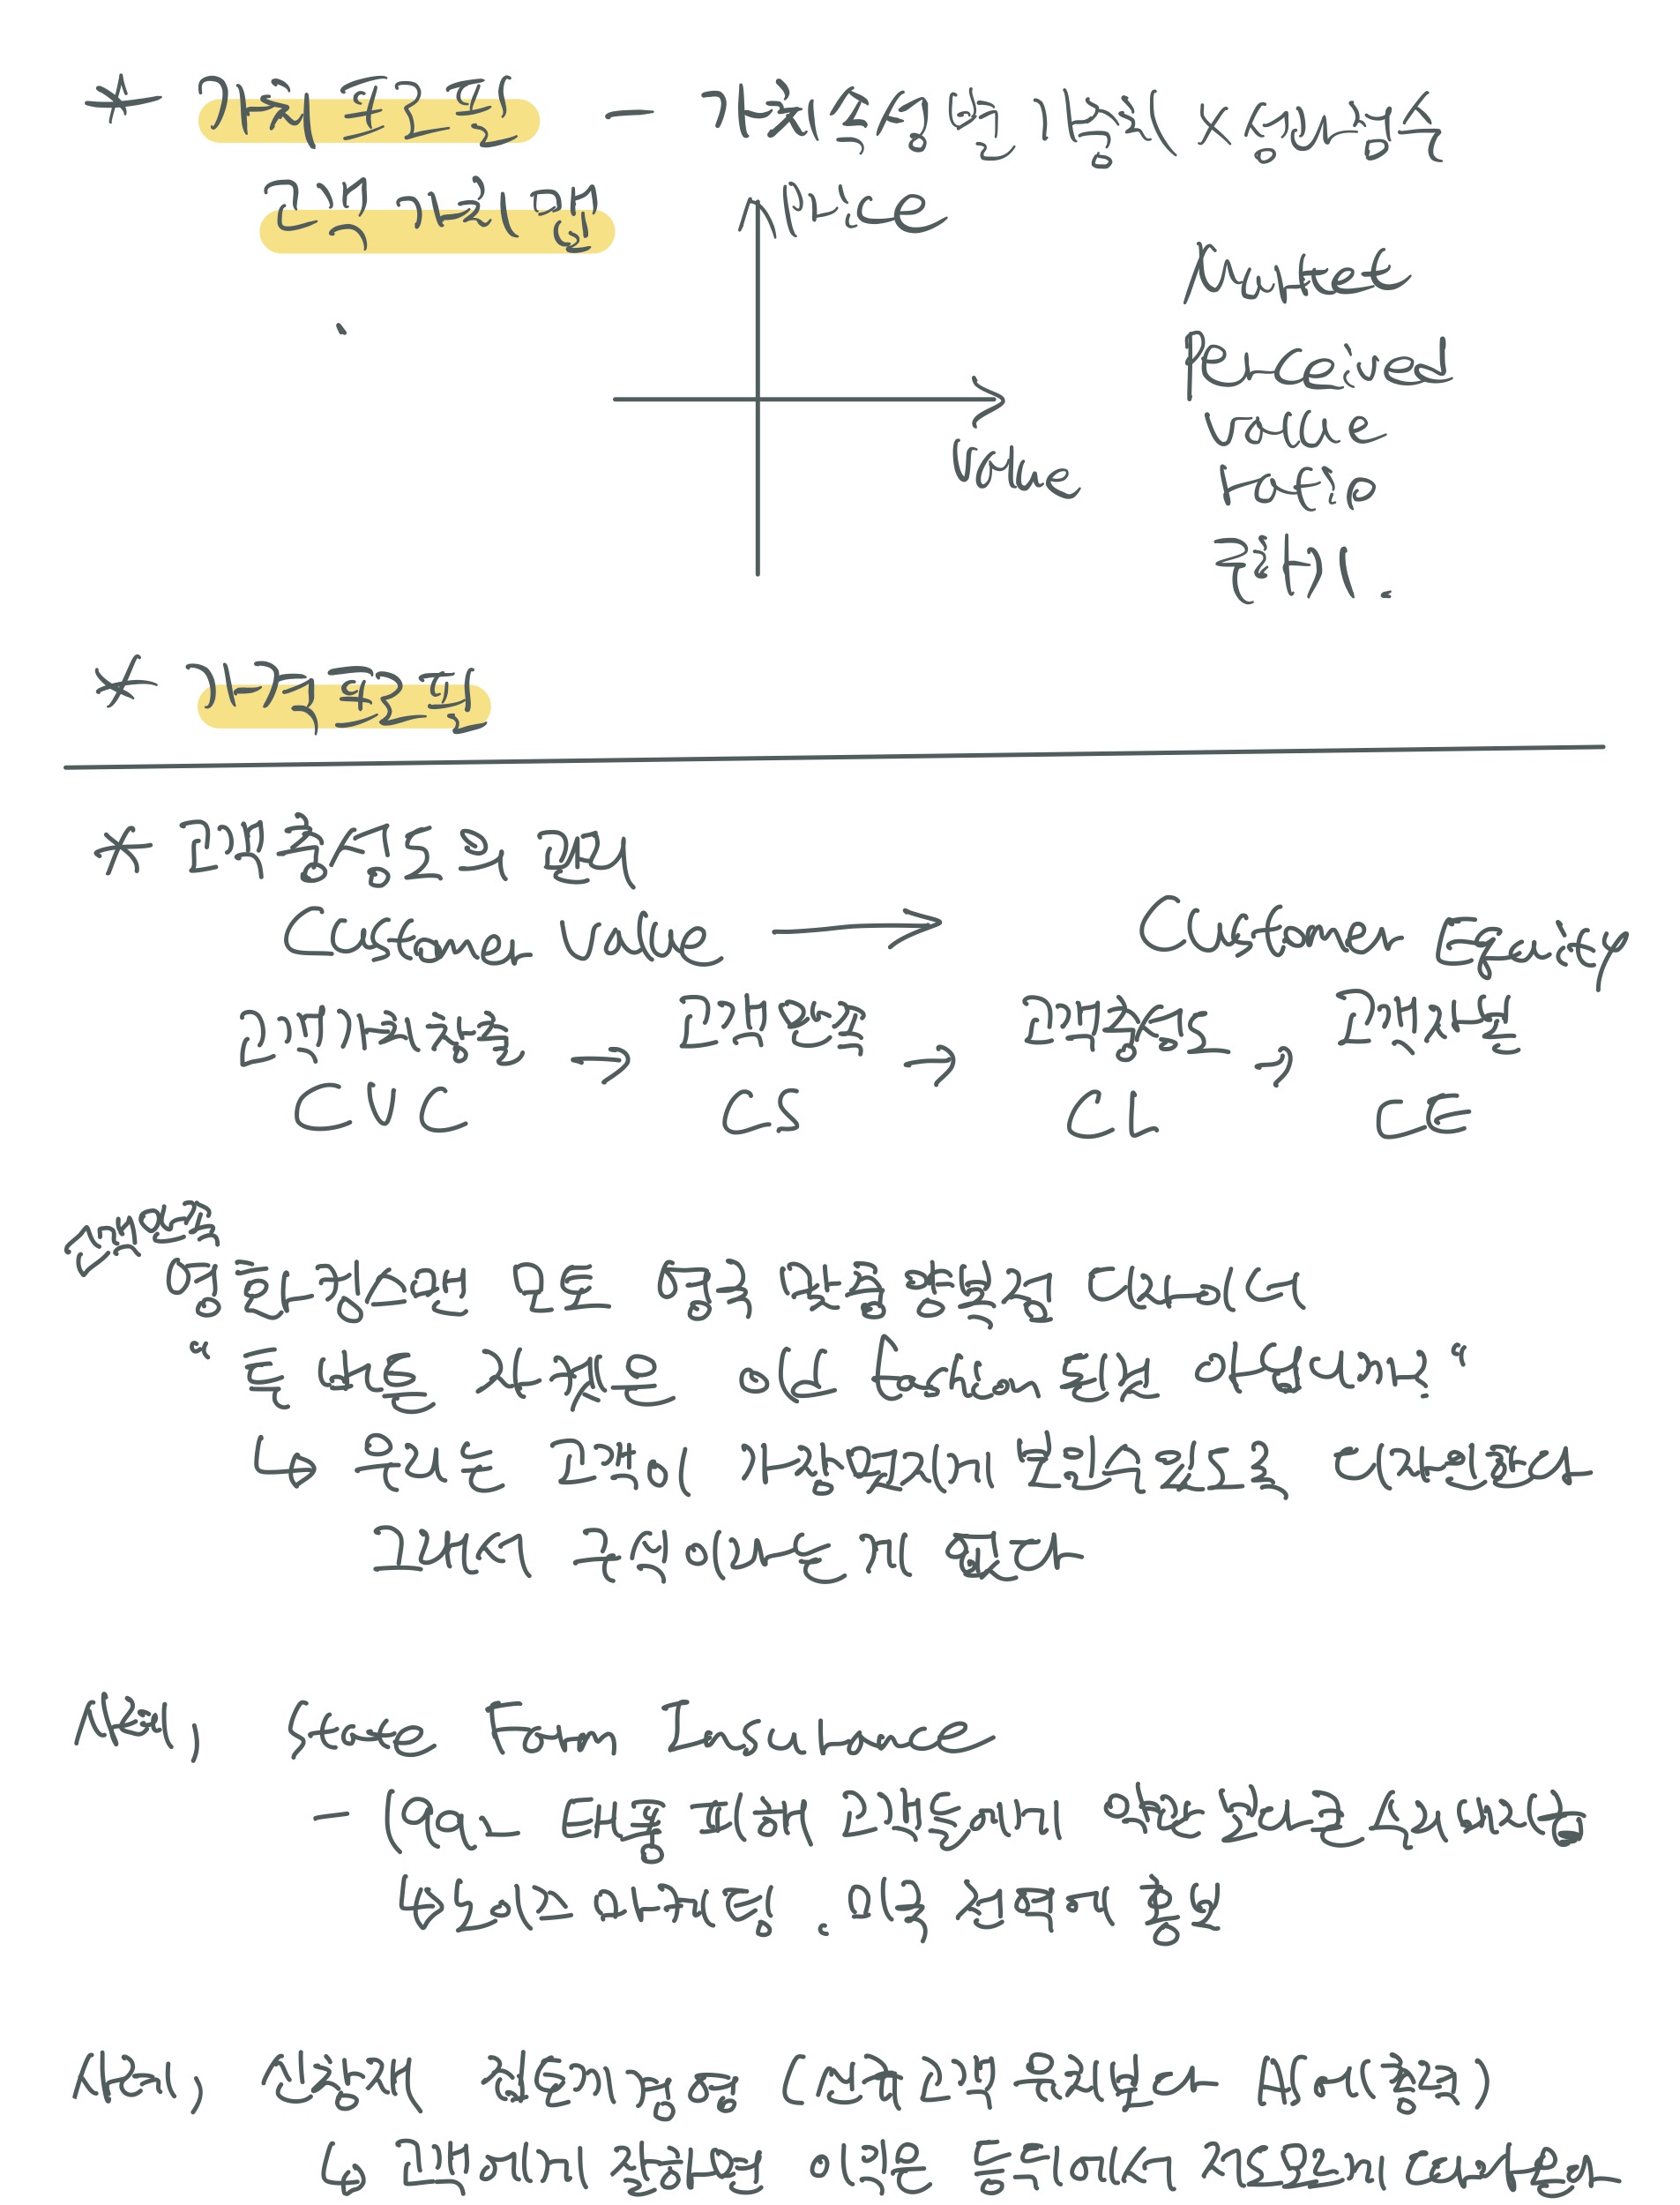 * 가치 프로필 - 가치속성별 가중치 X 성과점수
고객 가치 맵
Price
Market
Perceived
value
value
ratio
구하기.
* 가격프로필
* 고객충성도의 관리
Customer Value → Customer Equity
고객가치창출 → 고객만족 → 고객충성도 → 고객자산
CVC CS CL CE
고객만족
영화 킹스맨 모토 영국 맞춤양복점 디자이너
"톡 나온 자켓은 old fashion 들의 아닙니까?"
↳ 우리는 고객이 가장 멋지게 보일 수 있도록 디자인한다
그래서 구식이라는게 없다
사례) State Farm Insurance
- 199 태풍 피해 고객들에게 약관보다 큰 수리비 지급
↳ 뉴스 마케팅. 미국 전역에 홍보
사례) 신창재 회장 경영 (신규고객 유치보다 AS에 충격)
↳ 고객에게 잘하면 이익은 등뒤에서 저도모르게 따라온다